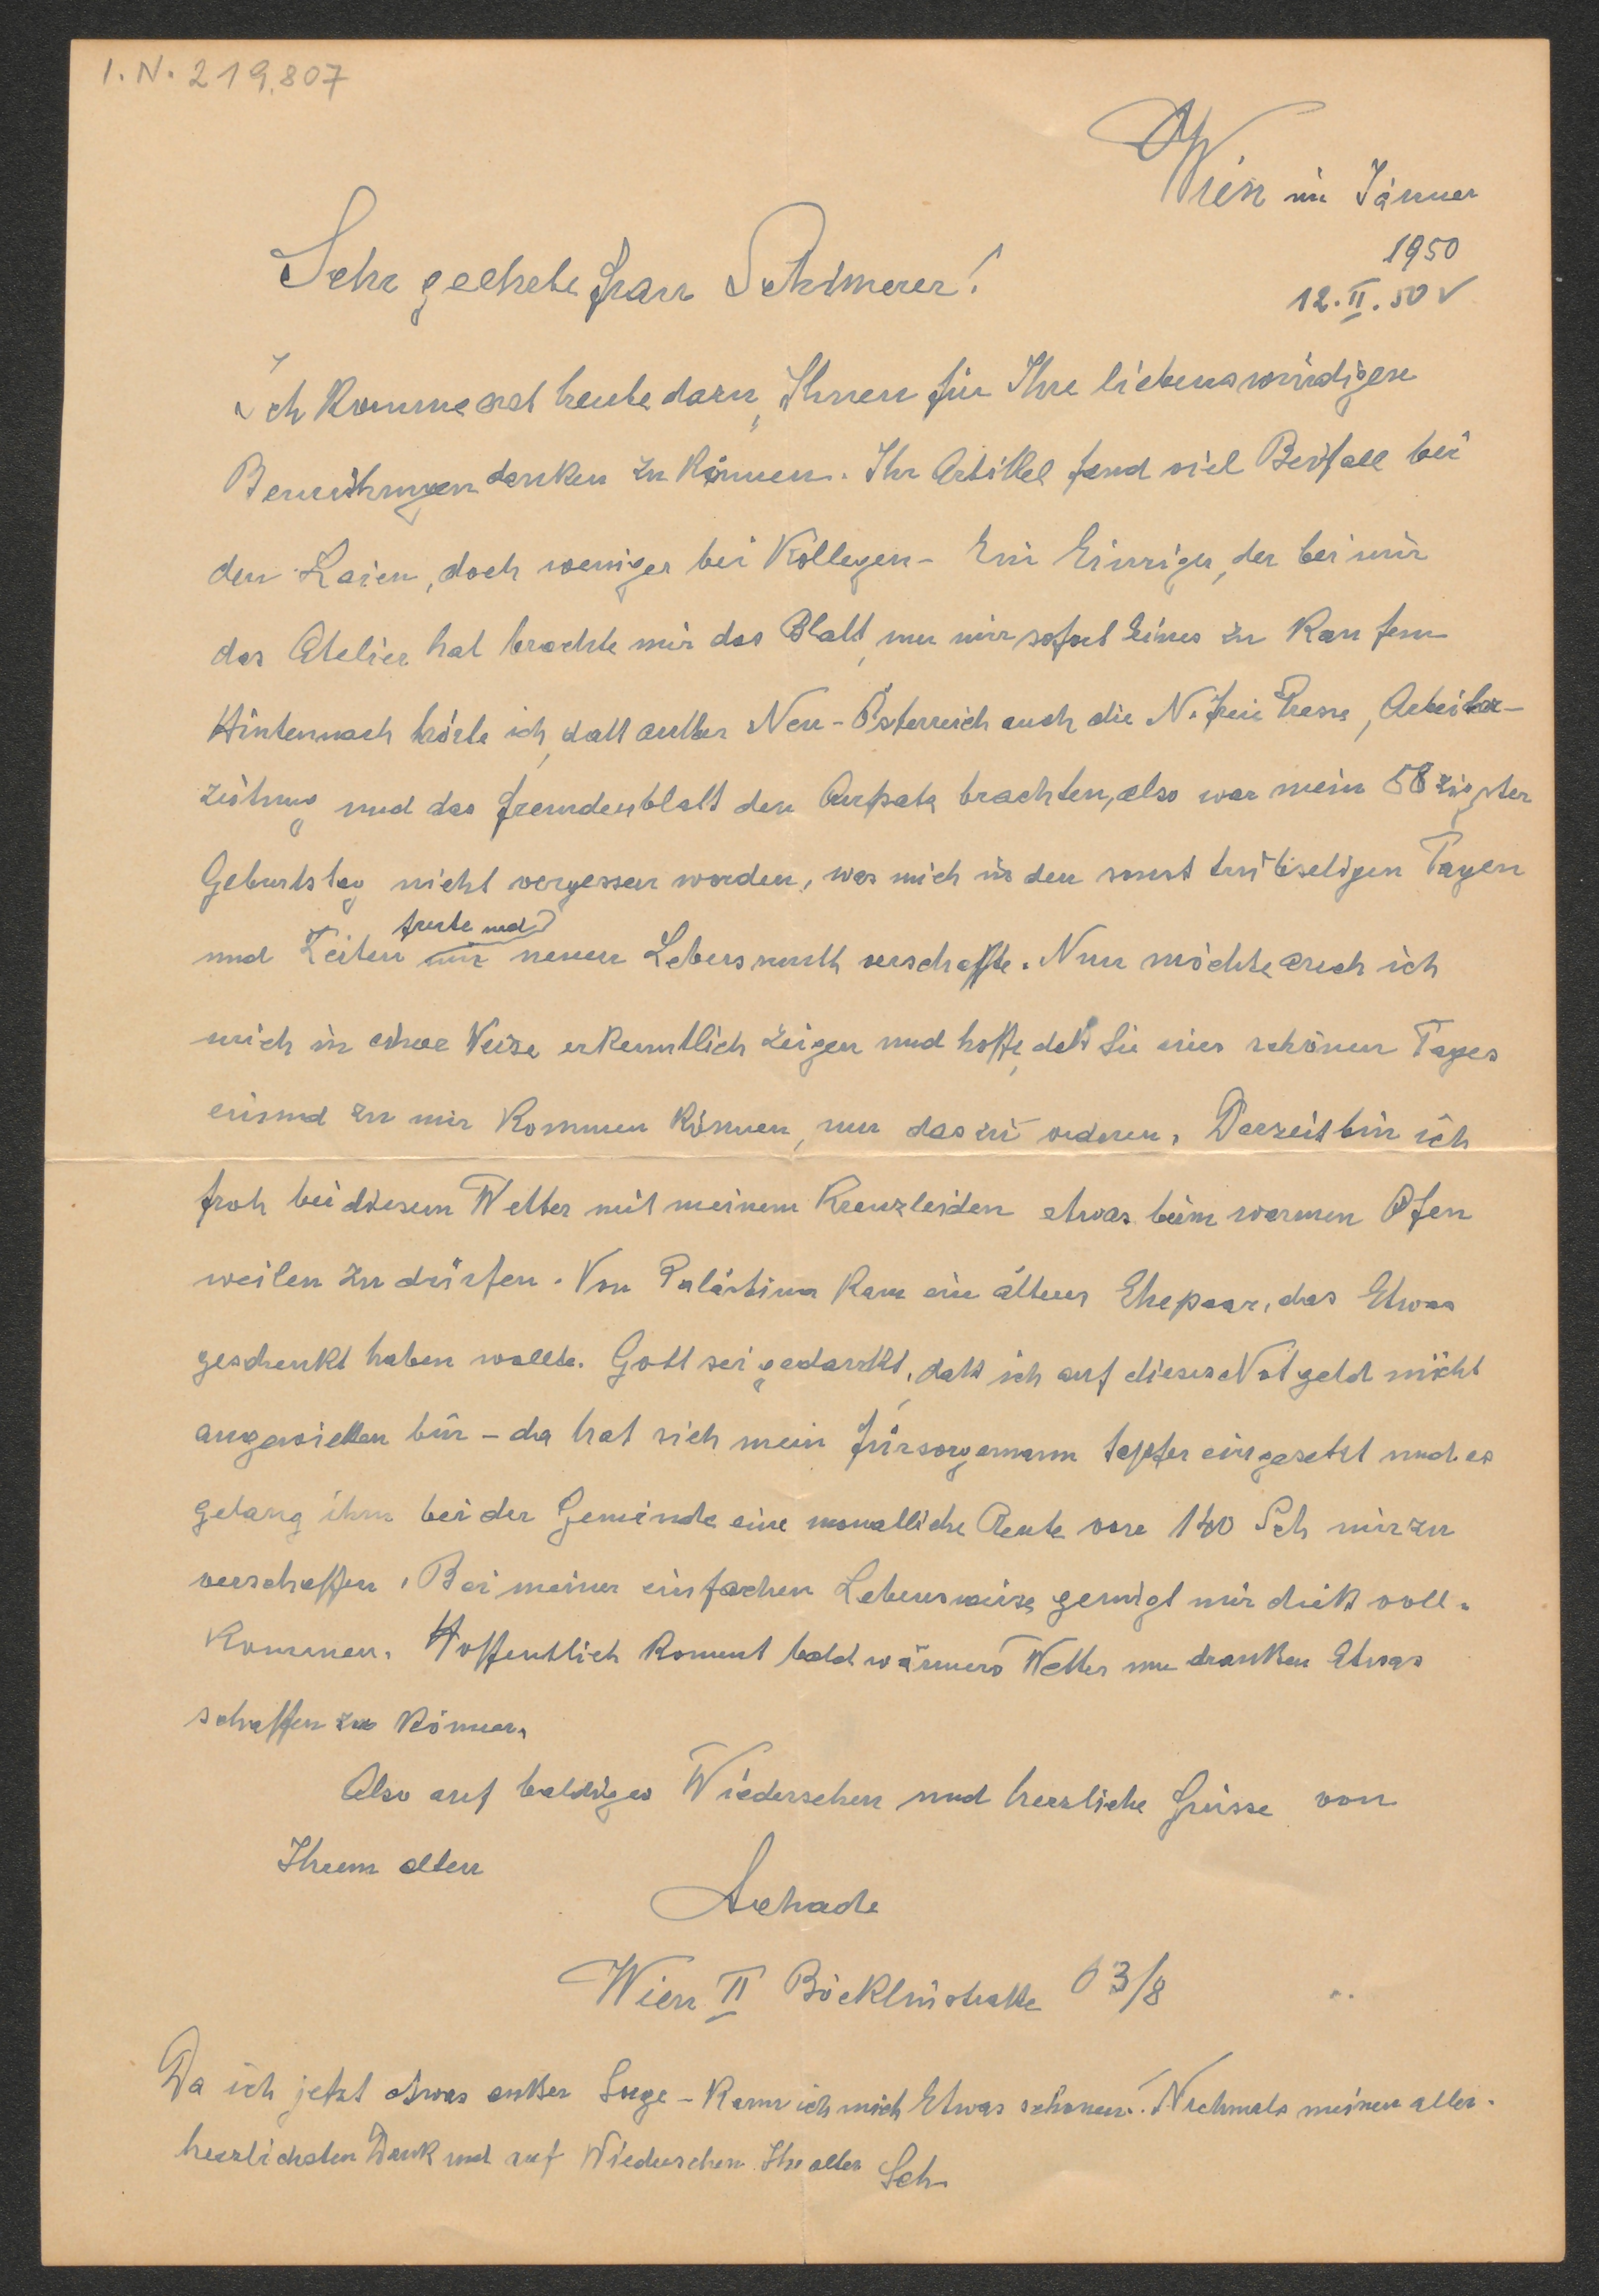 I.N. 219.807
Wien im Jänner
1950
12.II.50 ✓
Sehr geehrte Frau
Ich komme erst heute dazu, Ihnen für Ihre liebenswürdigen
Bemühungen danken zu können. Ihr Artikel fand viel Beifall bei
den Laien, doch weniger bei Kollegen - Ein Einziger, der bei mir
das Atelier hat brachte mir das Blatt, um mir sofort Eines zu kaufen
Hintennach hörte ich, daß außer Neu-Österreich auch die N. freie Presse, Arbeiter-
zeitung und das Fremdenblatt den brachten, also war mein
Geburtstag nicht vergessen worden, was mich in den sonst trübseligen Tagen
freute und
und Zeiten mir neuen Lebensmuth verschaffte. Nun möchte auch ich
mich in einer Weise erkenntlich zeigen und hoffe, daß Sie eines schönen Tages
einmal zu mir kommen können, um das zu ordnen. Derzeit bin ich
froh bei diesem Wetter mit meinem Kreuzleiden etwas beim warmen Ofen
weilen zu dürfen. Von Palästina kam ein älteres Ehepaar, das Etwas
geschenkt haben wollte. Gott sei gedankt, daß ich auf dieses Notgeld nicht
angewiesen bin - da hat sich mein Fürsorgemann tapfer eingesetzt und es
gelang ihm bei der Gemeinde eine monatliche Rente von Sch mir zu
verschaffen. Bei meiner einfachen Lebensweise genügt mir dieß voll-
kommen. Hoffentlich kommt bald wärmeres Wetter um draußen Etwas
schaffen zu können.
Also auf baldiges Wiedersehen und herzliche Grüsse von
Ihrem alten
Schade
Wien II Böcklinstraße 63/8
Da ich jetzt etwas außer Sorge - kann ich mich Etwas schonen. Nochmals meinen aller-
herzlichsten Dank und auf Wiedersehen Ihr alter Sch